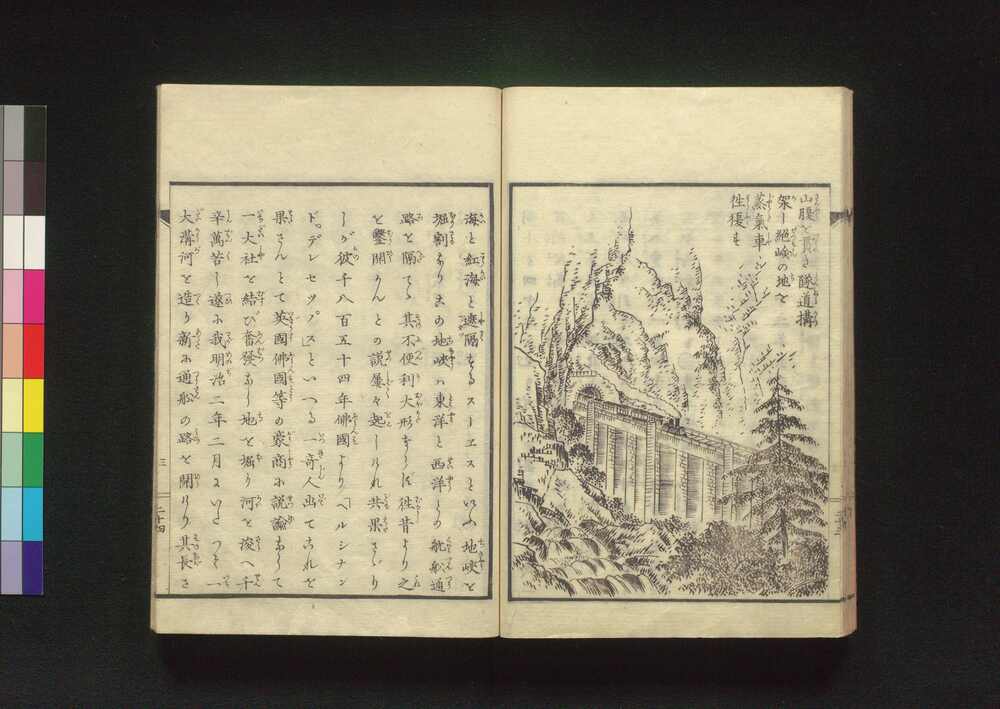 山腹を貫き隧道搆
架し絶嶮の地を
蒸氣車シ
徃復す
海と紅海と遮隔するスーエスといふ地峡を
堀割あり此の地峡ハ東洋と西洋との航舩通
路を隔てゝ其不便利大形ならず徃昔より之
を鑿開かんとの説屢々起しれ共果さゞり
しが彼千八百五十四年佛國よりヘルシナン
ド。デレセツプスといへる一奇人出てこれを
果さんとて英國佛國等の豪商に説諭して
一大社を結び奮發して地を掘り河を浚へ千
辛萬苦し遂に我明治二年二月にいたつて一
大溝河を造り新に通舩の路を開けり其長さ
三
二十四